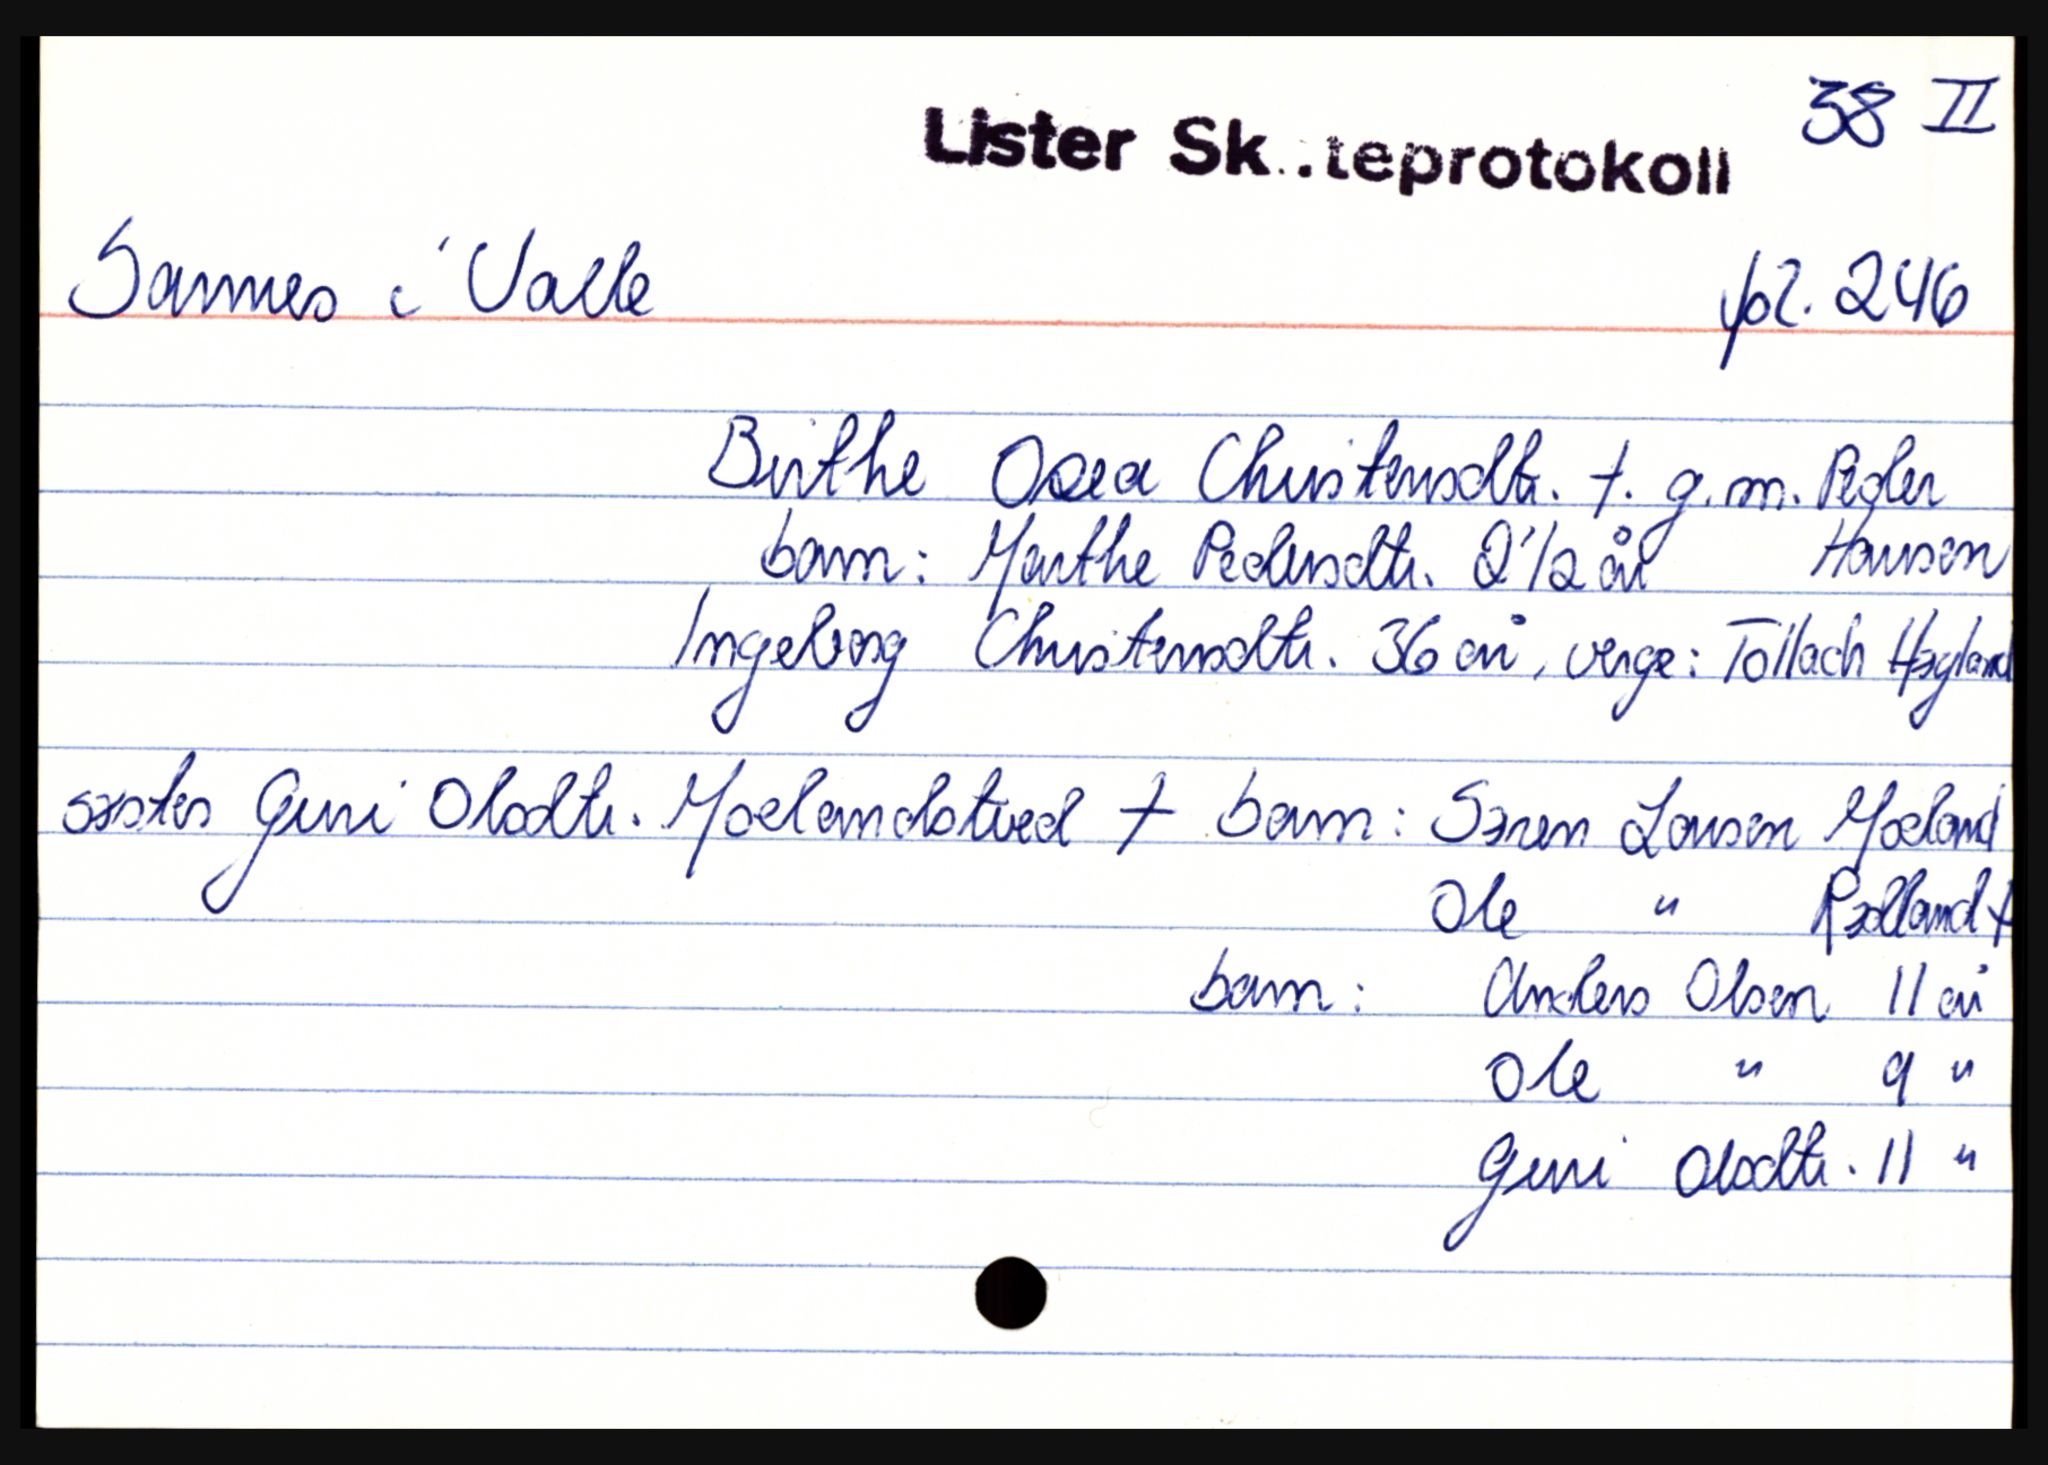 38 II
Lister Sk..teprotokoll
Sannes i Valle fol. 246
Birthe Osea Christensdtr. †. g.m. Peder
barn: Marthe Pedersdtr. 2 1/2 år Hansen
Ingeborg Christensdtr. 36 år, verge: Tollach Høyland
søster Guri Olsdtr. Moelandstved † barn: Søren Larsen Moeland
Ole " Rødland †
barn: Anders Olsen 11 år
Ole " 9 "
Guri Olsdtr. 11 "